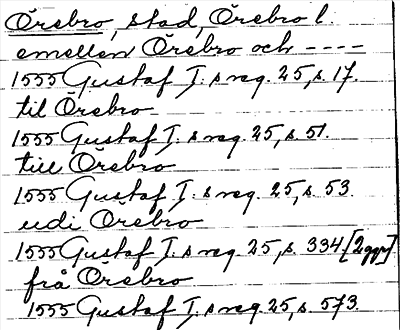 Örebro, stad, Örebro l.
emellan Örebro och ----
1555 Gustaf I:s reg. 25, s. 17.
til Örebro
1555 Gustaf I:s reg. 25, s. 51.
till Örebro
1555 Gustaf I:s reg. 25, s. 53.
udi Örebro
1555 Gustaf I:s reg. 25, s. 334 [2ggr].
frå Örebro
1555 Gustaf I:s reg. 25, s. 573.